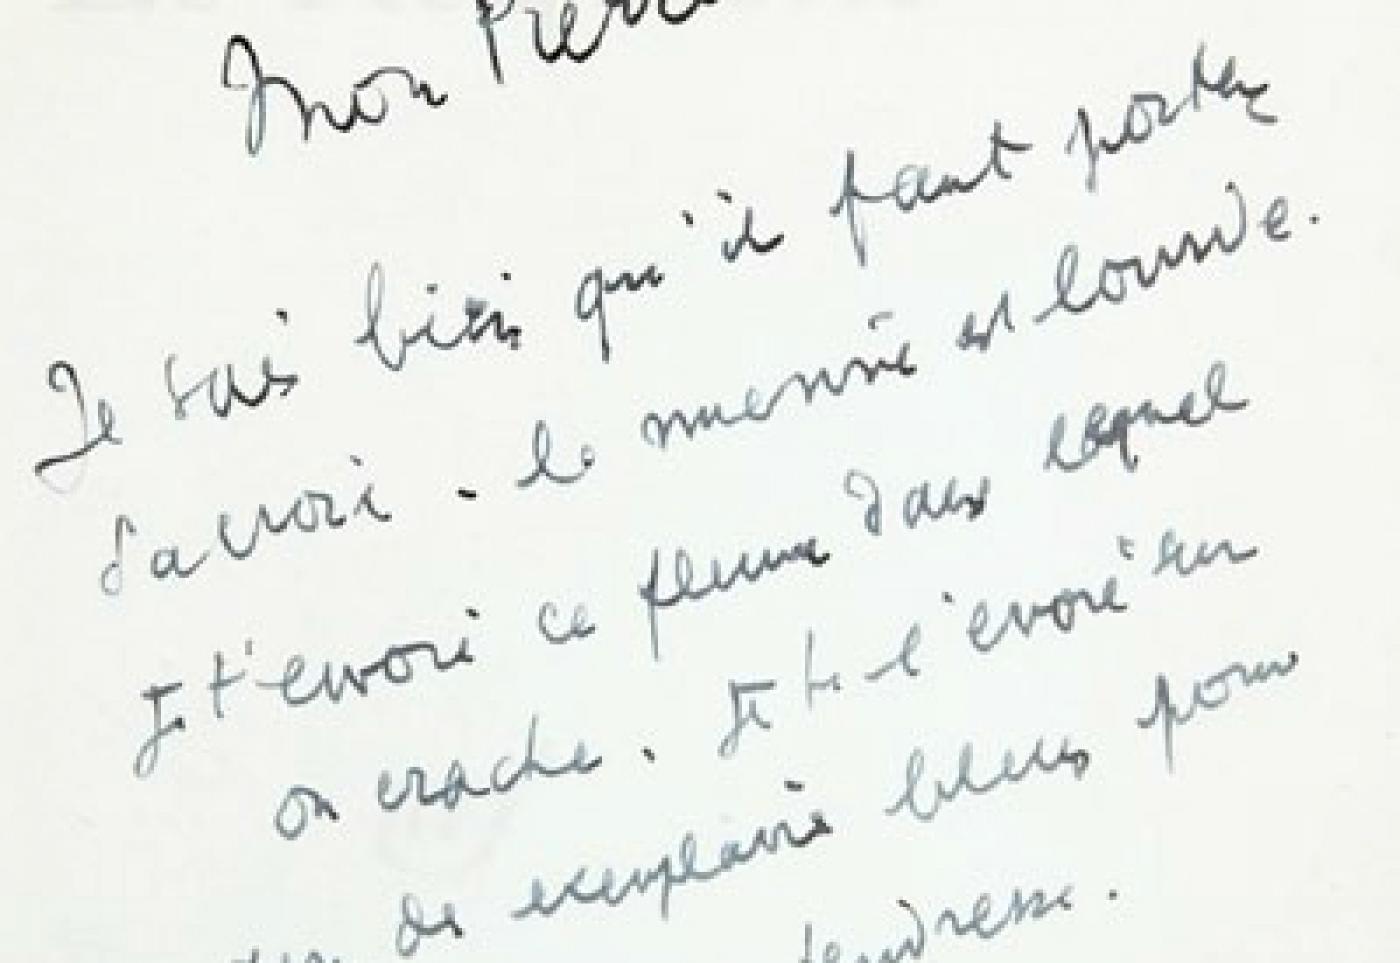 Mon Pierre
Je sais bien qu'il faut porter
sa croix. La mienne est lourde.
Je t'envoie ce fleuve dans lequel
on crache. Je te l'envoie sur
des exemplaires bleus pour
tendresse.